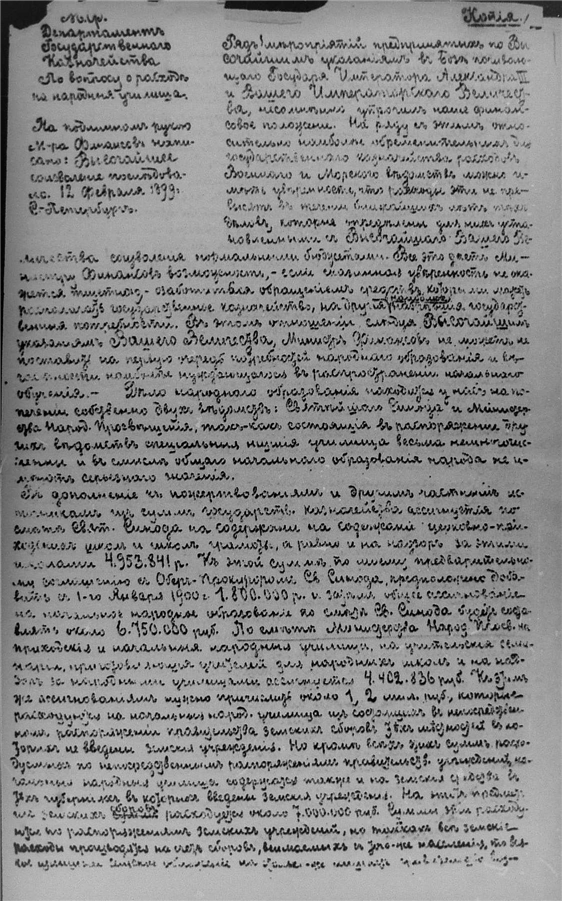 Копія.
М.Ф.
Департаментъ
Государственнаго
Казначейства
По вопросу о расходѣ
на народныя училища.
На подлинномъ рукою
М-ра Финансовъ напи-
сано: Высочайшее
соизволеніе послѣдова-
ло. 12 Февраля 1899.
С.-Петербургъ.
Рядъ мѣропріятій предпринятыхъ по Вы-
сочайшимъ указаніямъ въ Бозѣ почиваю-
щаго Государя Императора Александра III
и Вашего Императорскаго Величест-
ва, упрочилъ наше финан-
совое положеніе. На ряду съ этимъ, отно-
сительно наиболѣе обременительныхъ для
государственнаго казначейства расходовъ
Военнаго и Морского вѣдомствъ можно и-
мѣть увѣренность, что расходы эти не пре-
высятъ въ теченіи ближайшихъ лѣтъ пре-
дѣловъ, которые опредѣлены для нихъ уста-
новленными съ Высочайшаго Вашего Ве-
личества соизволенія бюджетами. Все это даетъ Ми-
нистру Финансовъ возможность, - если указанная увѣренность не ока-
жется тщетною, - озаботиться обращеніемъ средствъ, которыми можетъ
располагать государственное казначейство, на другія государст-
венныя потребности. Въ этомъ отношеніи слѣдуя Высочайшимъ
указаніямъ Вашего Величества, Министръ Финансовъ не можетъ не
поставить на первую очередь потребностей народнаго образованія и въ
частности наиболѣе нуждающагося въ распространеніи начальнаго
обученія. - Дѣло народнаго образованія находится у насъ на по-
печеніи собственно двухъ вѣдомствъ: Святѣйшаго Синода и Министер-
ства Народ. Просвѣщенія, такъ какъ состоящія въ распоряженіи дру-
гихъ вѣдомствъ спеціальныя низшія училища весьма немногочис-
ленны и въ смыслѣ общаго начальнаго образованія народа не и-
мѣютъ серьезнаго значенія.
Въ дополненіе къ пожертвованіямъ и другимъ частнымъ ис-
точникамъ изъ суммъ государств. казначейства ассигнуется по
смѣтѣ Свят. Синода на содержаніи на содержаніе церковно-при-
ходскихъ школъ и школъ грамоты, а равно и на надзоръ за этими
школами 4.953.841 р. Къ этой суммѣ, по моему предварительно-
му соглашенію съ Оберъ-Прокуроромъ Св. Синода, предположено доба-
вить съ 1-го Января 1900 г. 1.800.000 р. и затѣмъ общее ассигнованіе
на начальное народное образованіе по смѣтѣ Св. Синода будетъ состав-
лять около 6.750.000 руб. По смѣтѣ Министерства Народ. Просв. на
приходскія и начальныя народныя училища, на учительскія семи-
наріи, приготовляющія учителей для народныхъ школъ и на над-
зоръ за народными училищами ассигнуется 4.402.836 руб. Къ этимъ
же ассигнованіямъ нужно причислить около 1,2 мил. руб., которые
расходуются на начальныя народ. училища изъ состоящихъ въ непосредствен-
номъ распоряженіи правительства земскихъ сборовъ тѣхъ мѣстностей въ ко-
торыхъ не введены земскія учрежденія. Но кромѣ всѣхъ этихъ суммъ расхо-
дуемыхъ по непосредственнымъ распоряженіямъ правительств. учрежденій, на-
чальныя народныя училища содержатся также и на земскія средства въ
тѣхъ губерніяхъ въ которыхъ введены земскія учрежденія. На этотъ предметъ
изъ земскихъ сборовъ расходуется около 7.000.000 руб. Суммы эти расходу-
ются по распоряженіямъ земскихъ учрежденій, но такъ какъ всѣ земскіе
расходы производятся на счетъ сборовъ, взимаемыхъ съ того-же населенія, то вся-
кое излишнее земское обложеніе